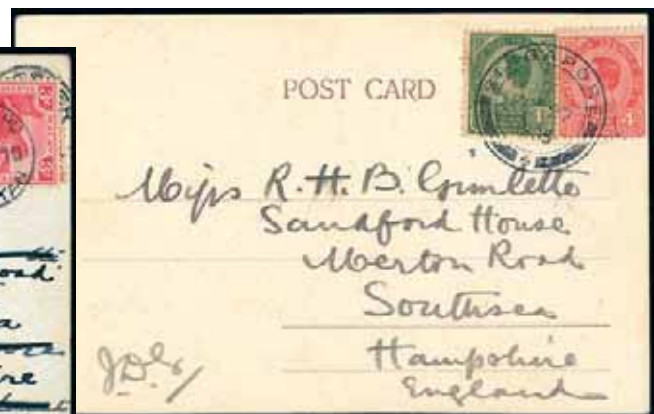 POST CARD
SINGAPORE
Miss R. H. B. Grimlette
Sandford House
Merton Road
Southsea
Hampshire
England
oad
a
re